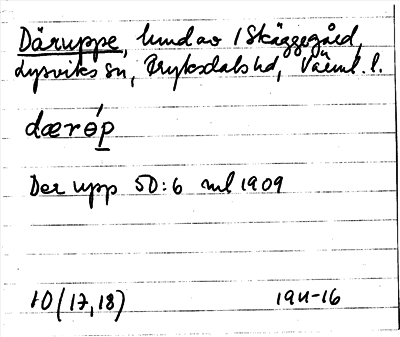 Däruppe, lund av 1 Skäggegård,
Lysviks sn, Fryksdals hd, Värml. l.
dærөṕ
Der upp 50:6 ml 1909
10 (17,18) 1911-16